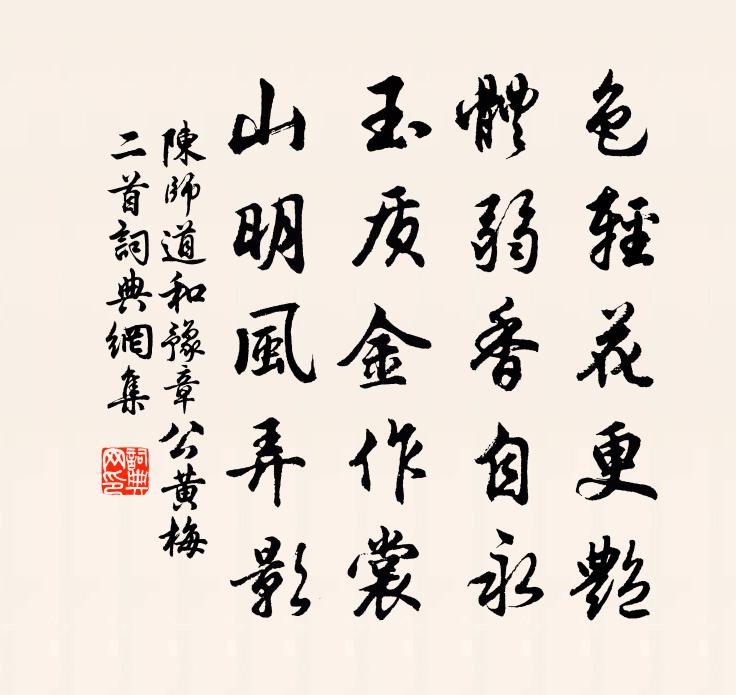 色輕花更艷
體弱香自永
玉质金作裳
山明風弄影
陳師道和豫章公黄梅
二首詞典網集
詞典
网印